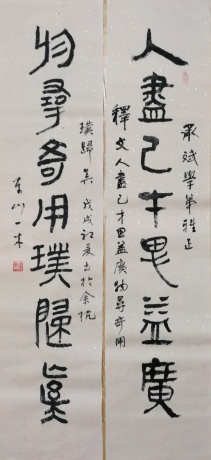 承斌學弟雅正
人盡己才思益廣
釋文人盡己才思益廣物尋奇用
璞歸真 戊戌初夏書於余杭
物尋奇用璞歸真
東山一木